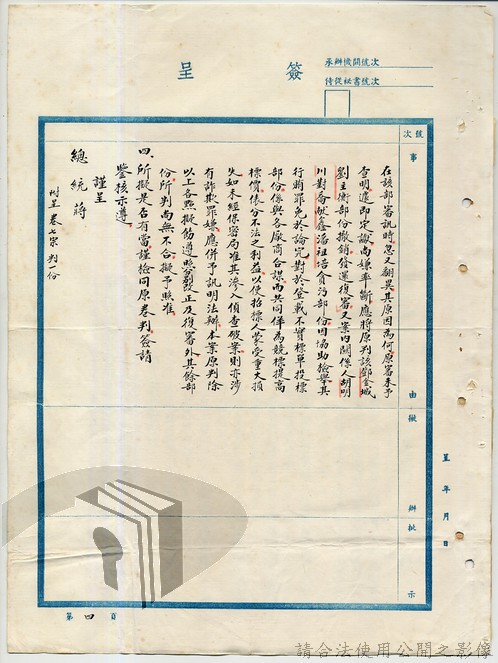 簽呈
承辦機關號次
侍從祕書號次
號次
事由
擬辦
批示
在該部審訊時忽又翻異其原因為何原審未予
查明遽即定讞尚嫌率斷應將原判該鄧金城
劉主衡部份撤銷發還復審又案內關係人胡明
川對喬猷鑫潘祖培貪污部份因協助檢舉其
行賄罪免於論究對於登載不實標單投標
部份係與各廠商合謀而共同佯為競標提高
標價俵分不法之利益以使招標人蒙受重大損
失如未經保密局准其滲入偵查破案則亦涉
有詐欺罪嫌應併予訊明法辦本案原判除
以上各點擬飭遵照改正及復審外其餘部
份所判尚無不合擬予照准
四、所擬是否有當謹檢同原卷判簽請
鑒核示遵
謹呈
總統蔣
附呈卷七宗判一份
呈 年 月 日
第四頁
請合法使用公開之影像